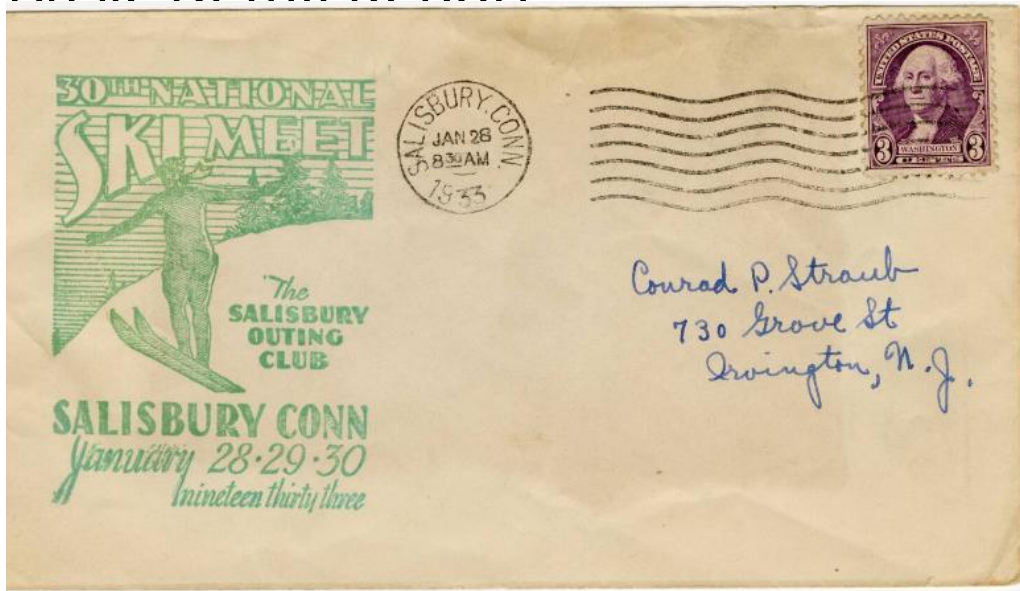 30TH NATIONAL
SKI MEET
The
SALISBURY
OUTING
CLUB
SALISBURY CONN
January 28·29·30
nineteen thirty three
SALISBURY, CONN.
JAN 28
8 30 AM
1933
UNITED STATES POSTAGE
3 WASHINGTON 3
CENTS
Conrad P. Straub
730 Grove St
Irvington, N. J.